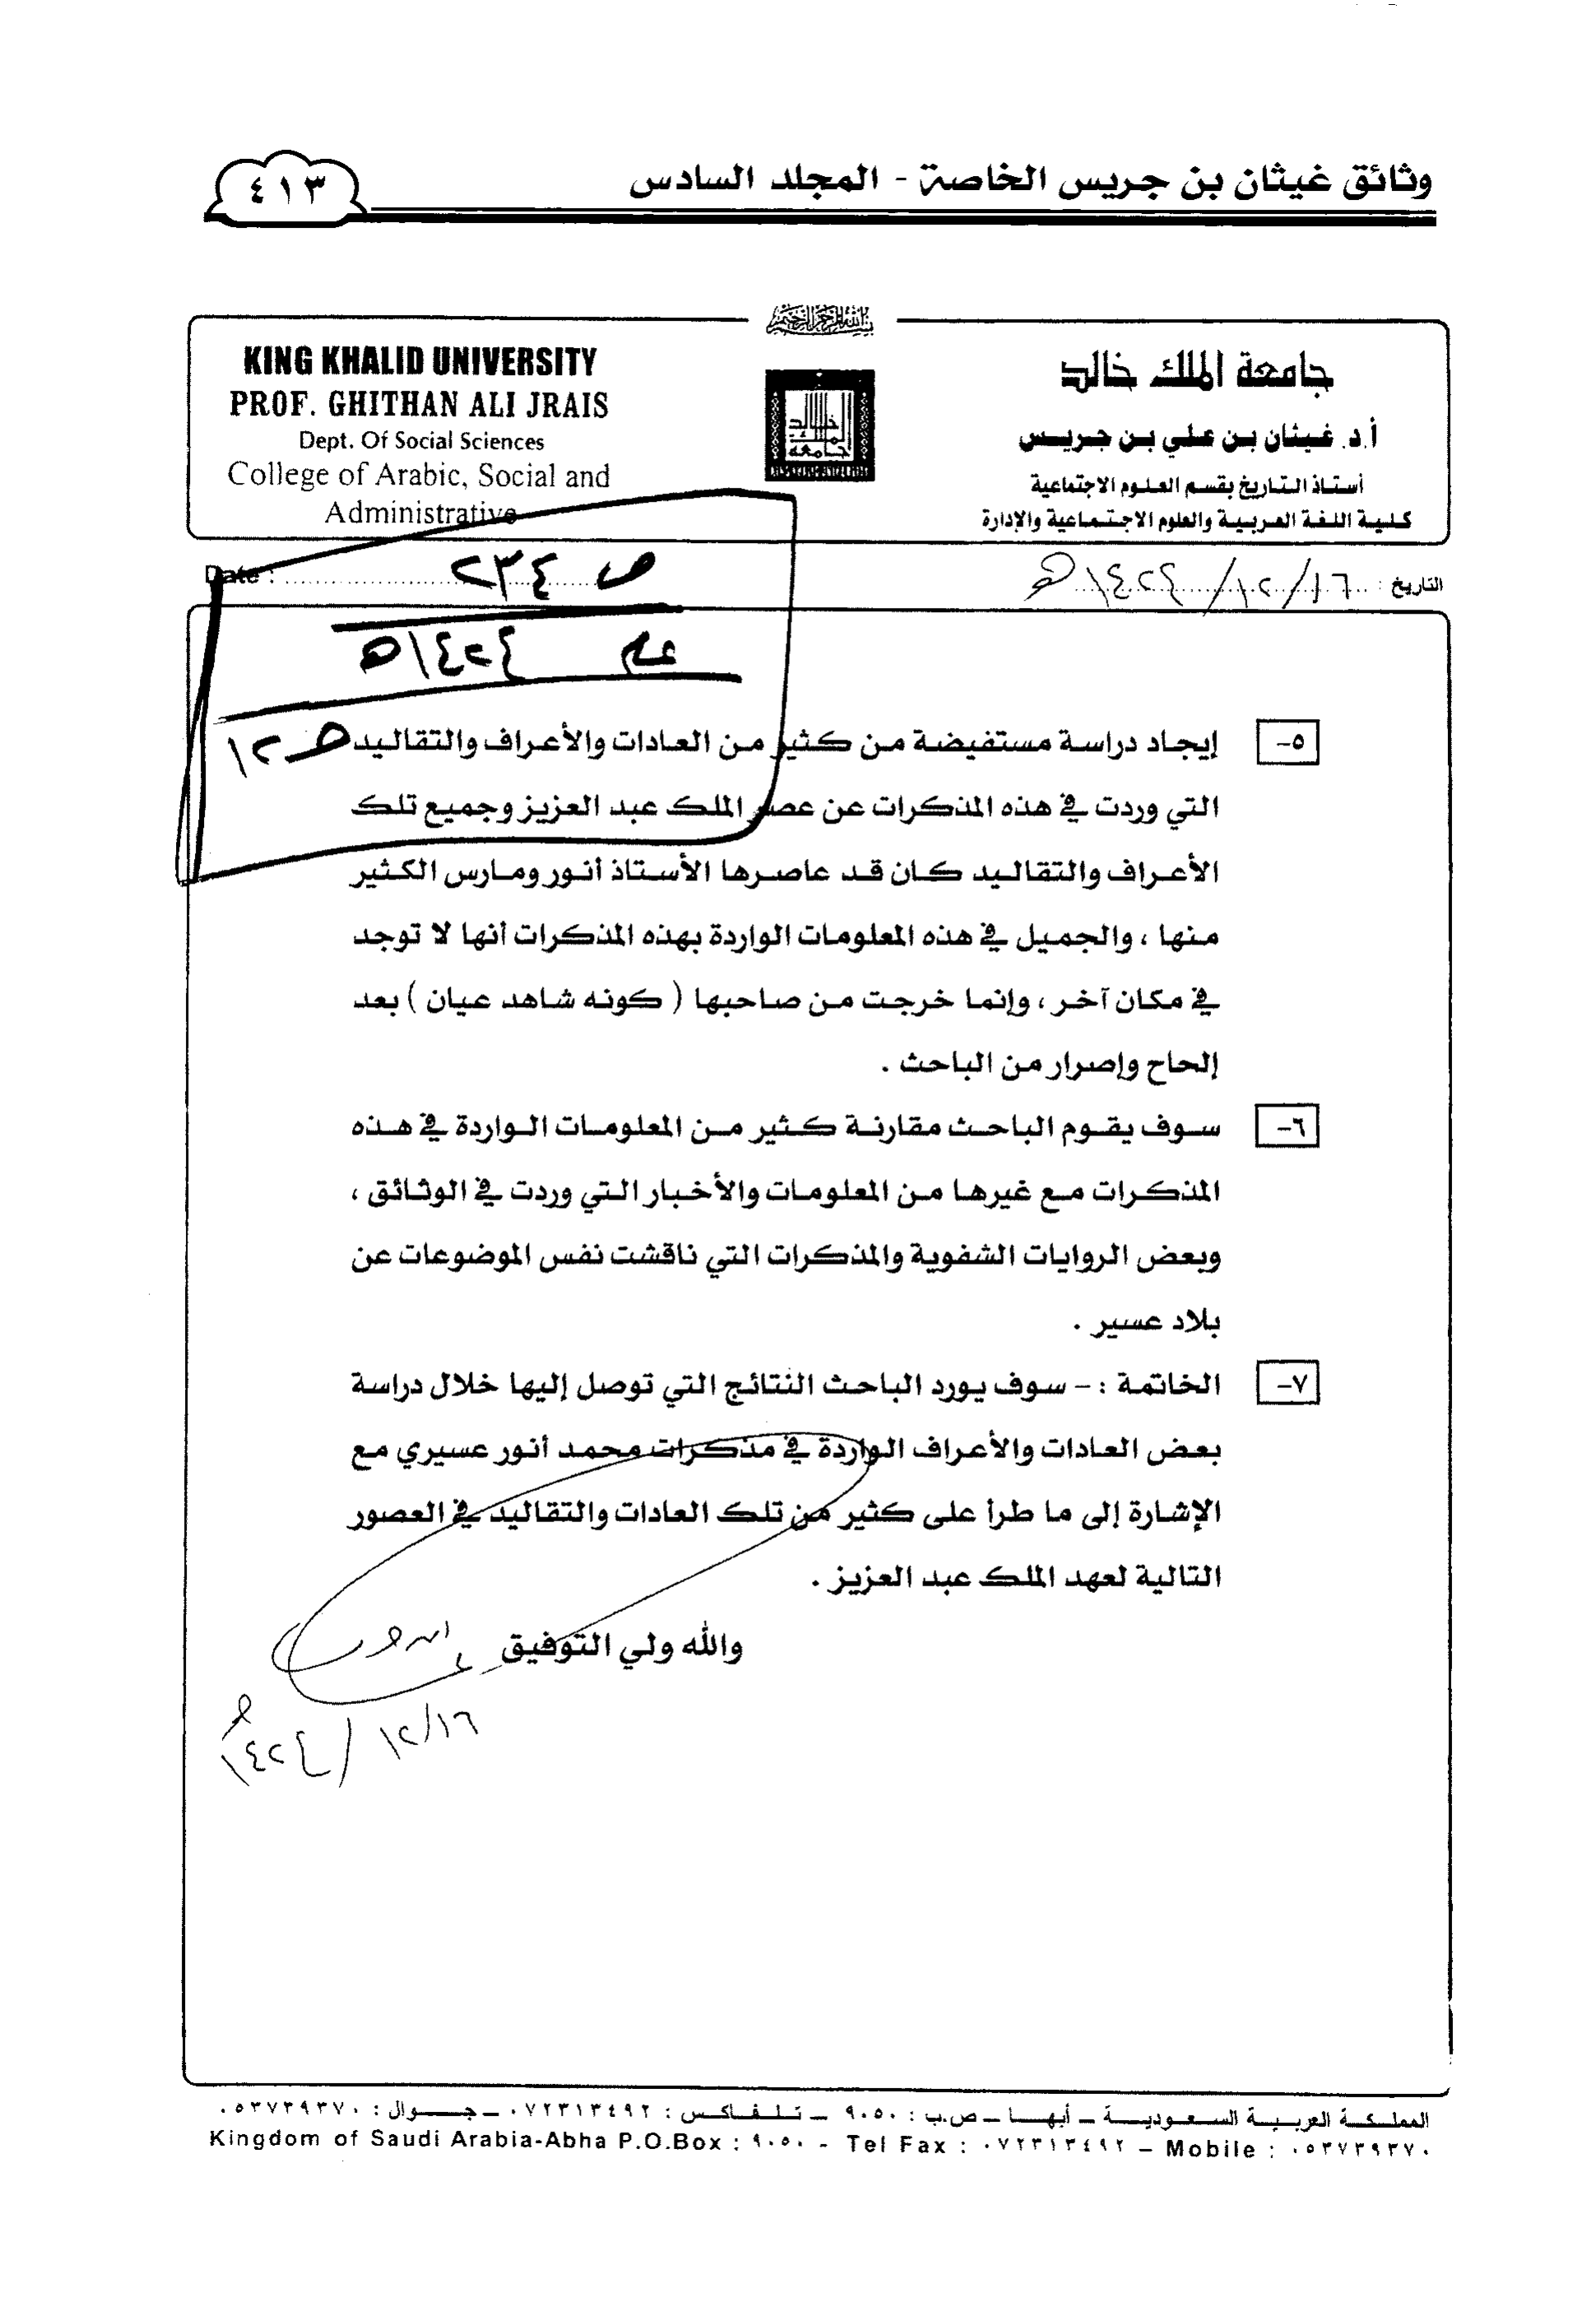 وثائق غيثان بن جريس الخاصة - المجلد السادس
٤١٣
بسم الله الرحمن الرحيم
جامعة الملك خالد
أ.د. غيثان بن علي بن جريس
أستاذ التاريخ بقسم العلوم الاجتماعية
كلية اللغة العربية والعلوم الاجتماعية والإدارة
KING KHALID UNIVERSITY
PROF. GHITHAN ALI JRAIS
Dept. Of Social Sciences
College of Arabic, Social and
Administrative
التاريخ : ١٦/١٢/١٤٢٤هـ
Date :
ص ٢٣٤
١٤٢٤هـ
ص ١٢
٥- إيجاد دراسة مستفيضة من كثير من العادات والأعراف والتقاليد
التي وردت في هذه المذكرات عن عصر الملك عبد العزيز وجميع تلك
الأعراف والتقاليد كان قد عاصرها الأستاذ أنور ومارس الكثير
منها ، والجميل في هذه المعلومات الواردة بهذه المذكرات أنها لا توجد
في مكان آخر ، وإنما خرجت من صاحبها ( كونه شاهد عيان ) بعد
إلحاح وإصرار من الباحث .
٦- سوف يقوم الباحث مقارنة كثير من المعلومات الواردة في هذه
المذكرات مع غيرها من المعلومات والأخبار التي وردت في الوثائق ،
وبعض الروايات الشفوية والمذكرات التي ناقشت نفس الموضوعات عن
بلاد عسير .
٧- الخاتمة : - سوف يورد الباحث النتائج التي توصل إليها خلال دراسة
بعض العادات والأعراف الواردة في مذكرات محمد أنور عسيري مع
الإشارة إلى ما طرأ على كثير من تلك العادات والتقاليد في العصور
التالية لعهد الملك عبد العزيز .
والله ولي التوفيق
١٦/١٢/١٤٢٤هـ
المملكة العربية السعودية – أبها – ص.ب : ٩٠٥٠ – تلفاكس : ٠٧٢٣١٣٤٩٢ – جوال : ٠٥٣٧٣٩٣٧٠
Kingdom of Saudi Arabia-Abha P.O.Box : ٩٠٥٠ - Tel Fax : ٠٧٢٣١٣٤٩٢ – Mobile : ٠٥٣٧٣٩٣٧٠